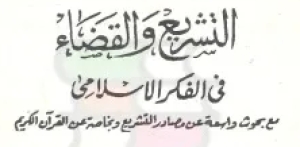 التشريع والقضاء
في الفكر الإسلامي
مع بحوث واسعة عن مصادر التشريع وبخاصة عن القرآن الكريم